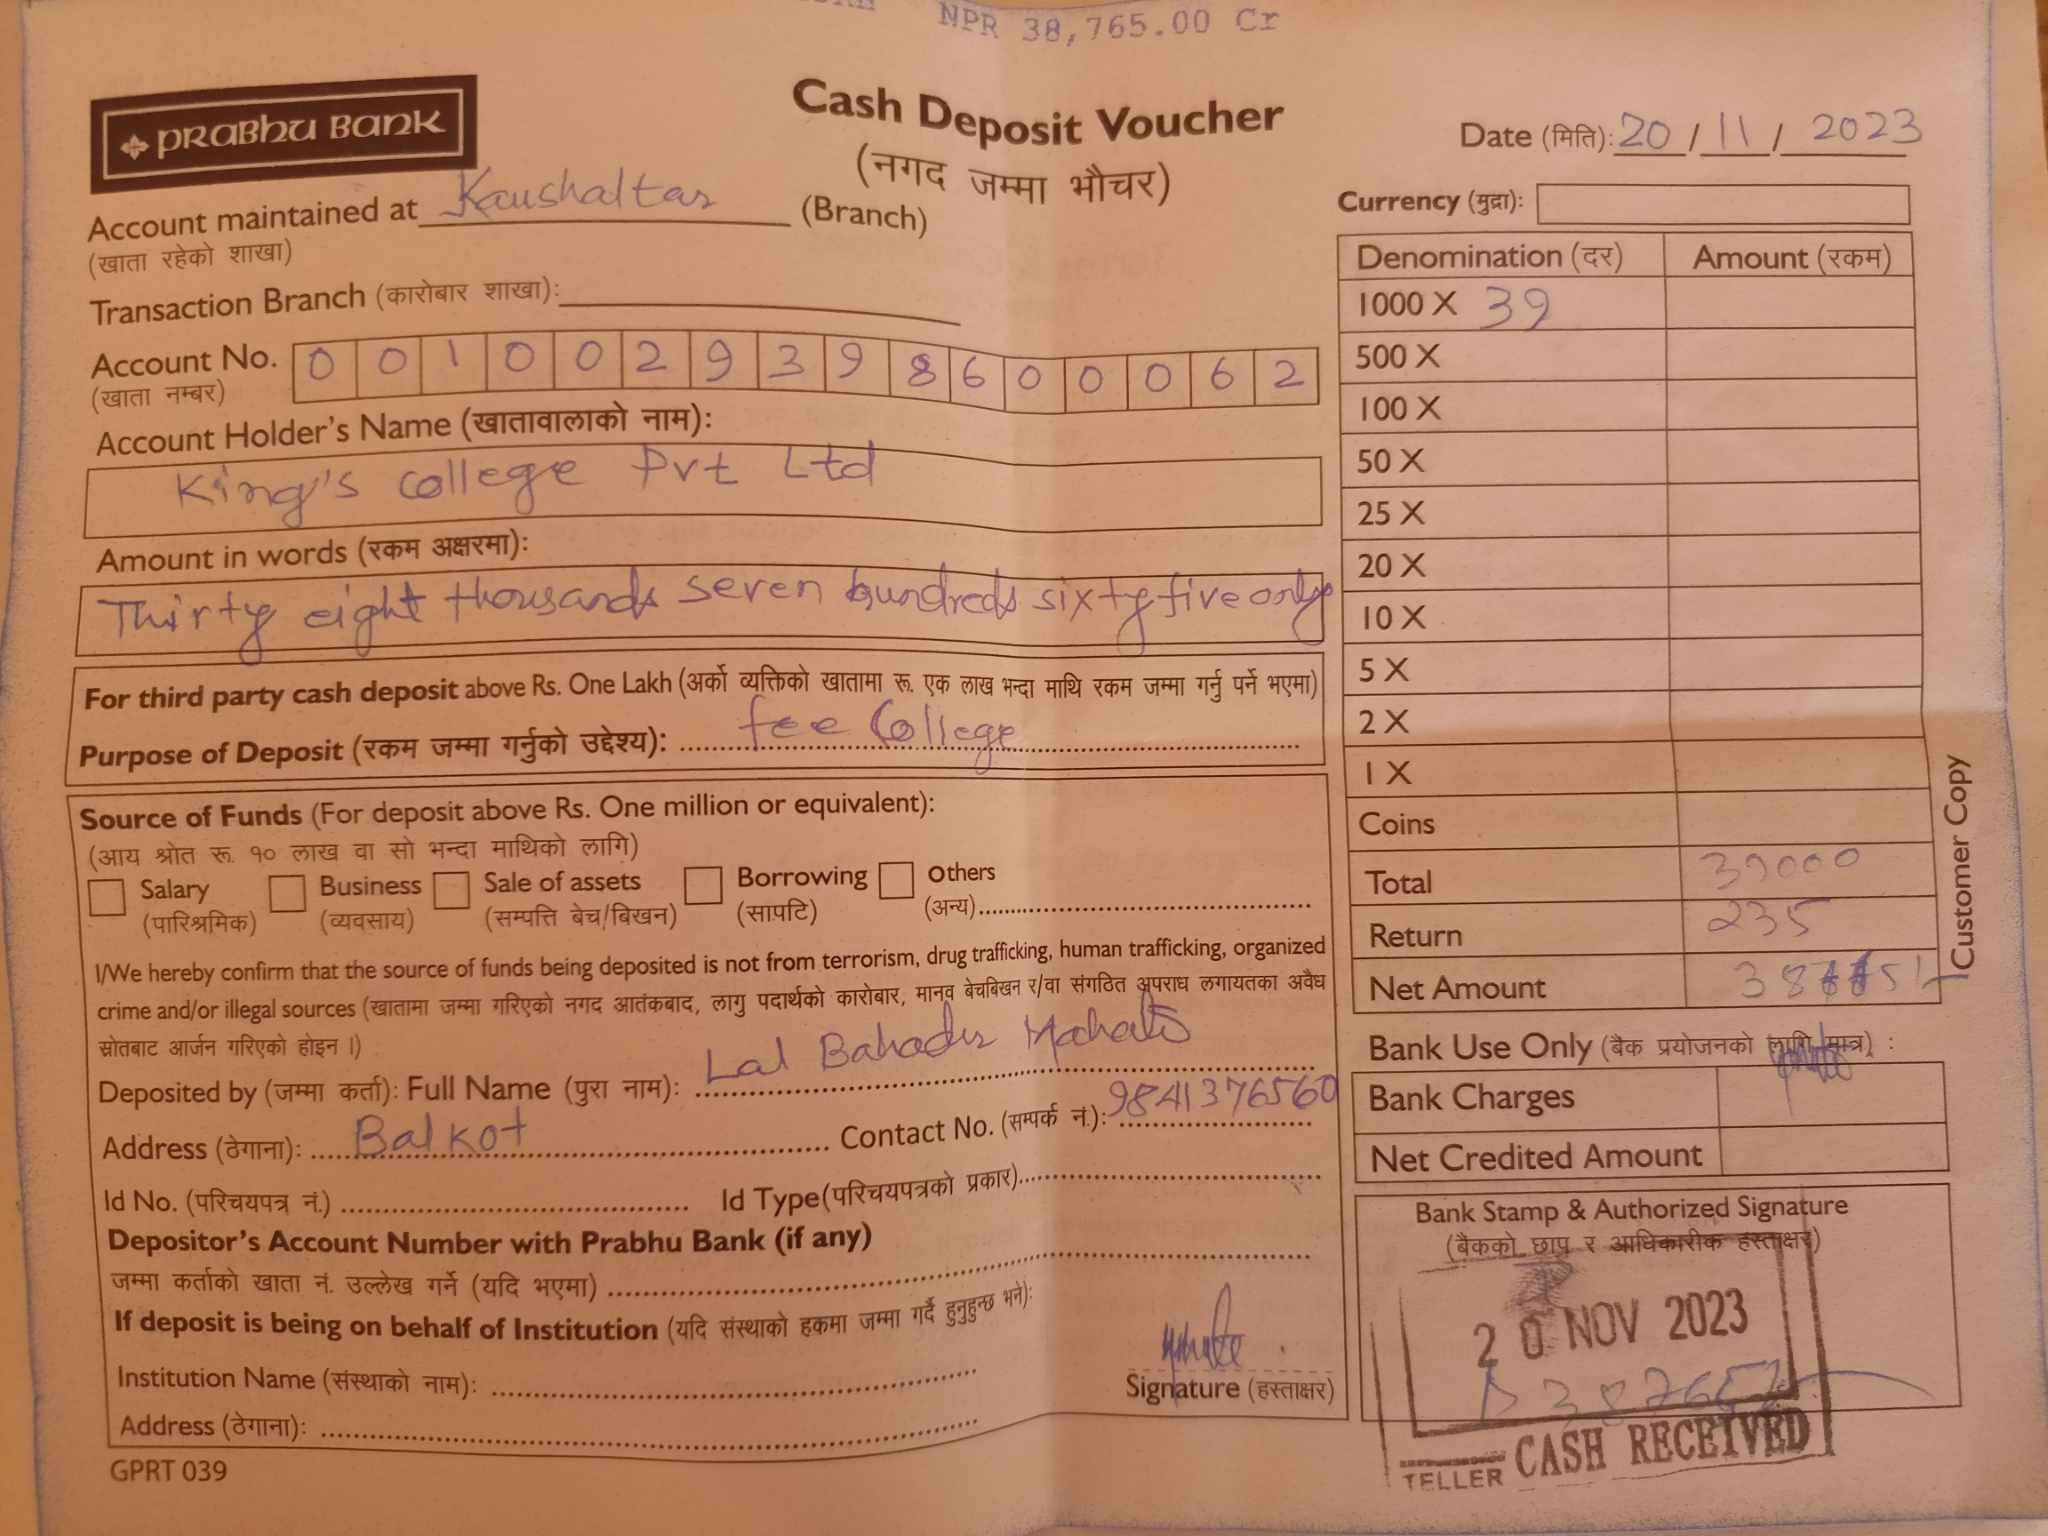 NPR 38,765.00 Cr
PRABHU BANK
Cash Deposit Voucher
(नगद जम्मा भौचर)
Date (मिति): 20 / 11 / 2023
Account maintained at Kaushaltar (Branch)
(खाता रहेको शाखा)
Transaction Branch (कारोबार शाखा):
Account No. 0 0 1 0 0 2 9 3 9 8 6 0 0 0 6 2
(खाता नम्बर)
Account Holder's Name (खातावालाको नाम):
King's college Pvt Ltd
Amount in words (रकम अक्षरमा):
Thirty eight thousands seven hundreds sixty five only
For third party cash deposit above Rs. One Lakh (अर्को व्यक्तिको खातामा रू. एक लाख भन्दा माथि रकम जम्मा गर्नु पर्ने भएमा)
Purpose of Deposit (रकम जम्मा गर्नुको उद्देश्य): fee College
Source of Funds (For deposit above Rs. One million or equivalent):
(आय श्रोत रू. १० लाख वा सो भन्दा माथिको लागि)
Salary Business Sale of assets Borrowing Others
(पारिश्रमिक) (व्यवसाय) (सम्पत्ति बेच/बिखन) (सापटि) (अन्य)
I/We hereby confirm that the source of funds being deposited is not from terrorism, drug trafficking, human trafficking, organized
crime and/or illegal sources (खातामा जम्मा गरिएको नगद आतंकबाद, लागु पदार्थको कारोबार, मानव बेचबिखन र/वा संगठित अपराध लगायतका अवैध
स्रोतबाट आर्जन गरिएको होइन ।)
Deposited by (जम्मा कर्ता): Full Name (पुरा नाम): Lal Bahadur Mahato
Address (ठेगाना): Balkot Contact No. (सम्पर्क नं.): 9841376560
Id No. (परिचयपत्र नं.) Id Type(परिचयपत्रको प्रकार)
Depositor's Account Number with Prabhu Bank (if any)
जम्मा कर्ताको खाता नं. उल्लेख गर्ने (यदि भएमा)
If deposit is being on behalf of Institution (यदि संस्थाको हकमा जम्मा गर्दै हुनुहुन्छ भने):
Institution Name (संस्थाको नाम):
Signature (हस्ताक्षर)
Address (ठेगाना):
GPRT 039
Currency (मुद्रा):
Denomination (दर) Amount (रकम)
1000 X 39
500 X
100 X
50 X
25 X
20 X
10 X
5 X
2 X
1 X
Coins
Total 39000
Return 235
Net Amount
Customer Copy
Bank Use Only (बैक प्रयोजनको लागि मात्र) :
Bank Charges
Net Credited Amount
Bank Stamp & Authorized Signature
(बैकको छाप र आधिकारीक हस्ताक्षर)
20 NOV 2023
TELLER CASH RECEIVED